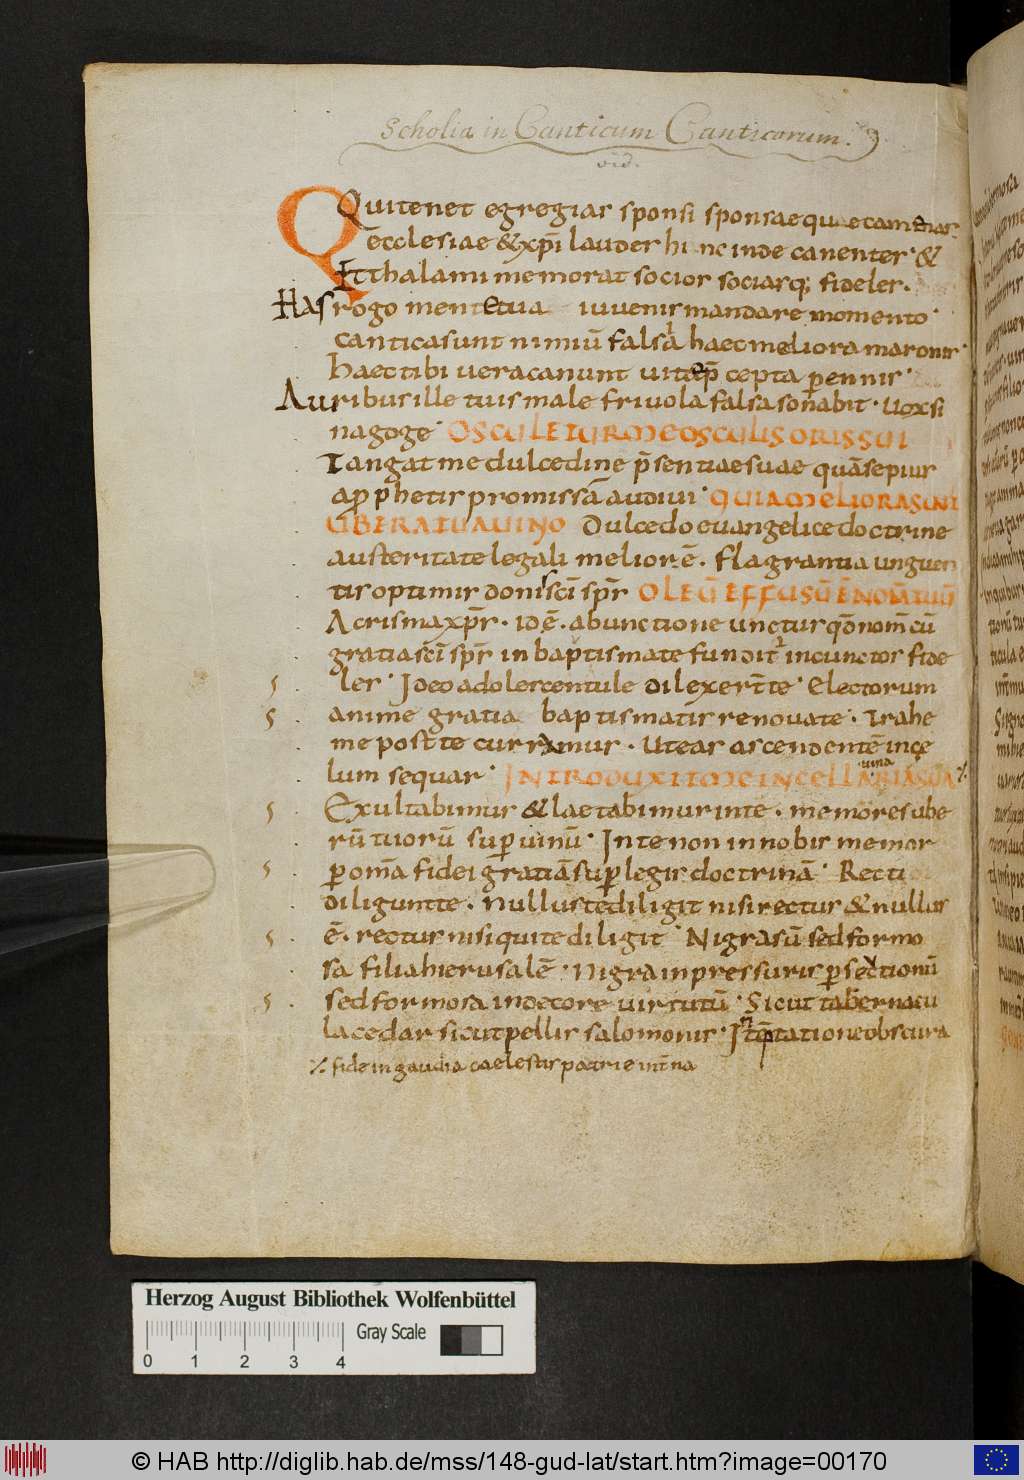 Scholia in Canticum Canticorum.
Quitenet egregias sponsi sponsaequaecamenas
ecclesiae & xp̄i laudes hinc inde canentes &
Et thalami memorat socios sociasq; fideles.
Has rogo mentetua iuvenis mandare momento
cantica sunt nimiū falsa haec meliora maronis
haec tibi vera canunt vitę p̄cepta perennis
Auribus ille tuis male frivola falsa sonabit. Vox si
nagoge OSCULETUR ME OSCULIS ORIS SUI
Tangat me dulcedine p̄sentiae suae quā sepius
a pphetis promissā audivi QUIA MELIORA SUNT
UBERA TUA UINO Dulcedo evangelice doctrine
austeritate legali melior ē. Flagrantia unguen
tis optimis donis sc̄i sp̄s OLEŪ EFFUSŪ Ē NOM̄ TUŪ
A crisma xp̄s. idē. ab unctione unctus qd̄ nom̄ cū
gratia sc̄i sp̄s in baptismate fundit in cunctos fide
les. Ideo adolescentule dilexer̄ te. Electorum
anime gratia baptismatis renovate. Trahe
me post te currimus. Ut eas ascendentē in cę
lum sequar INTRODUXIT ME IN CELLARIA SUA
vina
Exultabimus & laetabimur in te. memores ube
rū tuorū sup vinū. In te non in nobis memor
p om̄a fidei gratiā sup legis doctrinā. Recti
diligunt te. Nullus te diligit nisi rectus & nullus
ē. rectus nisi qui te diligit. Nigra sū sed formo
sa filia hierusalē. Nigra in pressuris psecutionū
sed formosa in decore virtutū. Sicut tabernacu
la cedar sicut pellis salomonis. In tēptatione obscura
fide in gaudia caelestis patrie int̄na
Herzog August Bibliothek Wolfenbüttel
Gray Scale
0 1 2 3 4
© HAB http://diglib.hab.de/mss/148-gud-lat/start.htm?image=00170